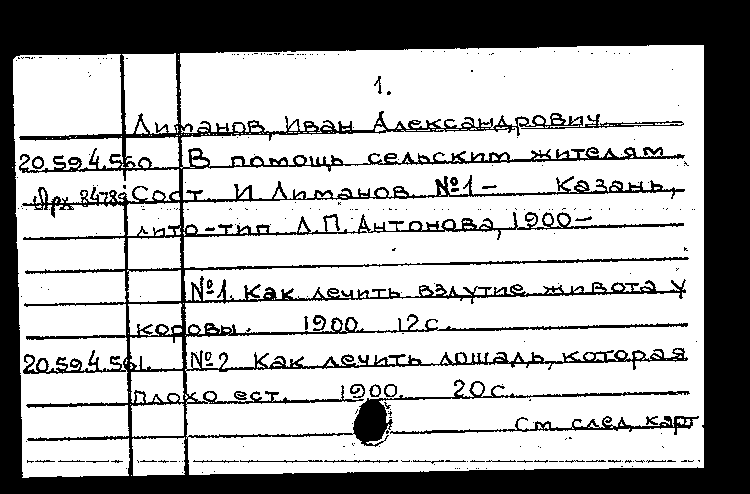 1.
Лиманов, Иван Александрович
20.59.4.560 В помощь сельским жителям.
Арх 84789 Сост. И. Лиманов. №1– Казань,
лито-тип. Л.П. Антонова, 1900–
№1. Как лечить вздутие живота у
коровы. 1900. 12 с.
20.59.4.561. №2 Как лечить лошадь, которая
плохо ест. 1900. 20 с.
См. след. карт.